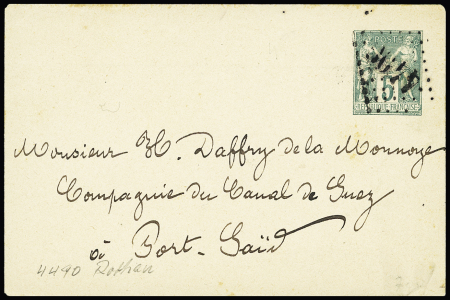 POSTE
5
RÉPUBLIQUE FRANÇAISE
Monsieur H. Daffry de la Monnoye
Compagnie du Canal de Suez
à Port-Saïd
4490 Rothau